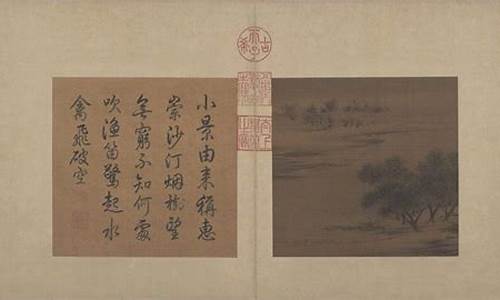 古希天子
小景由来稱惠
崇沙汀烟樹望
無窮不知何處
吹漁笛驚起水
禽飛破空